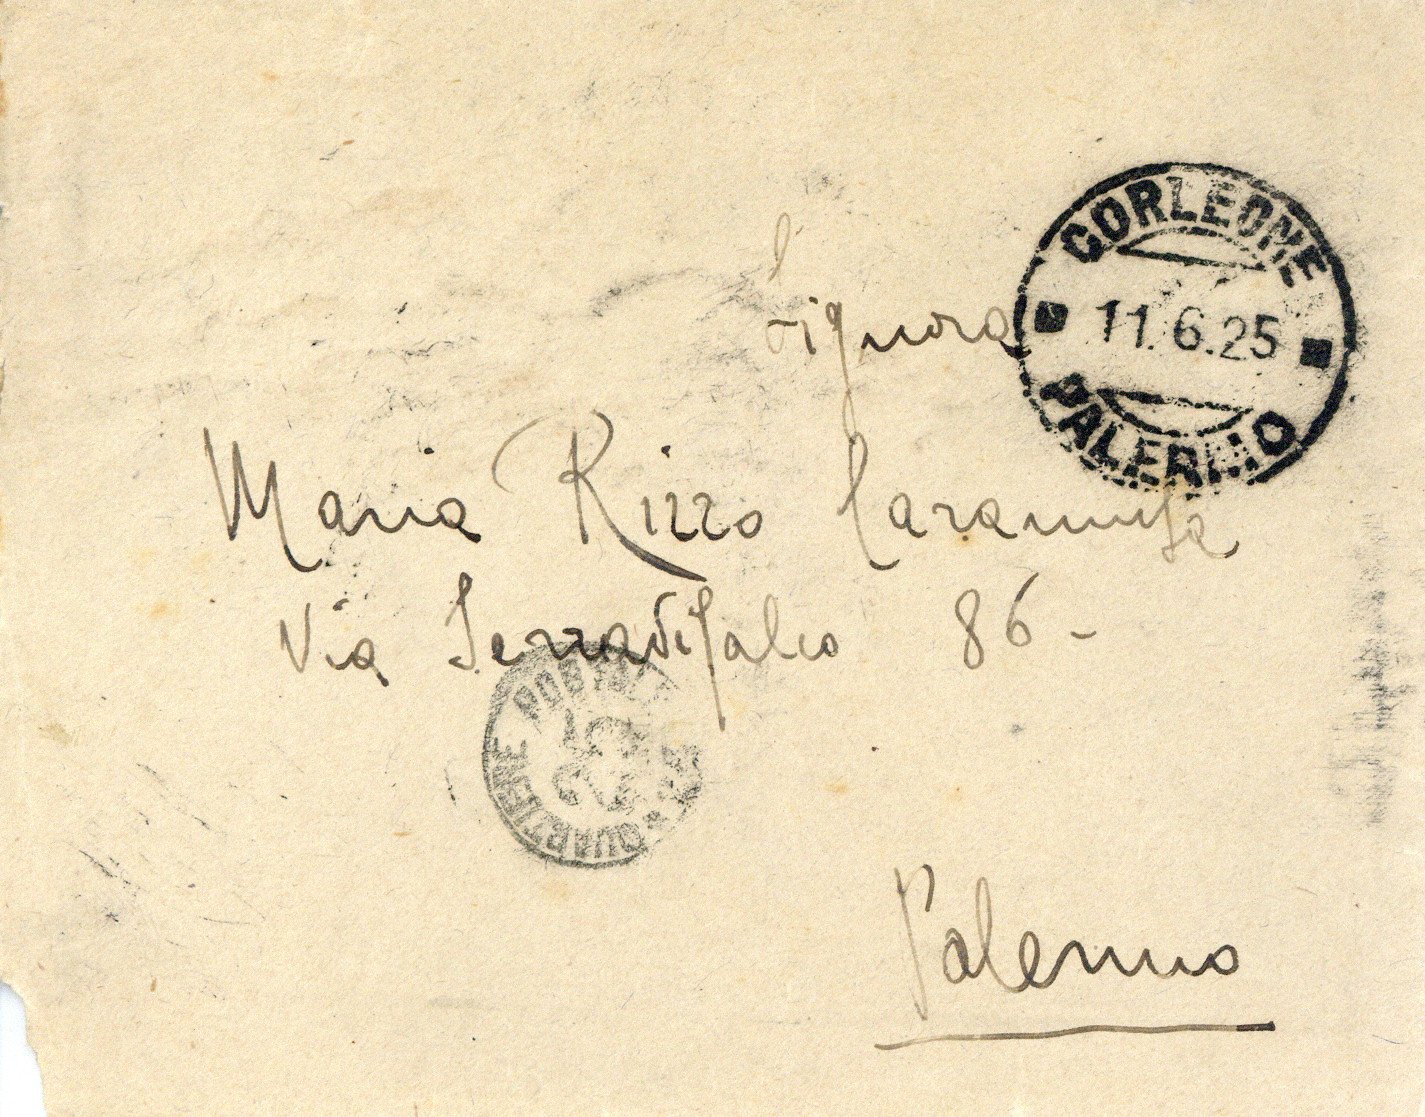 CORLEONE
11.6.25
PALERMO
Signora
Maria Rizzo
Via Serradifalco 86-
PORTALETTERE
QUARTIERE
Palermo